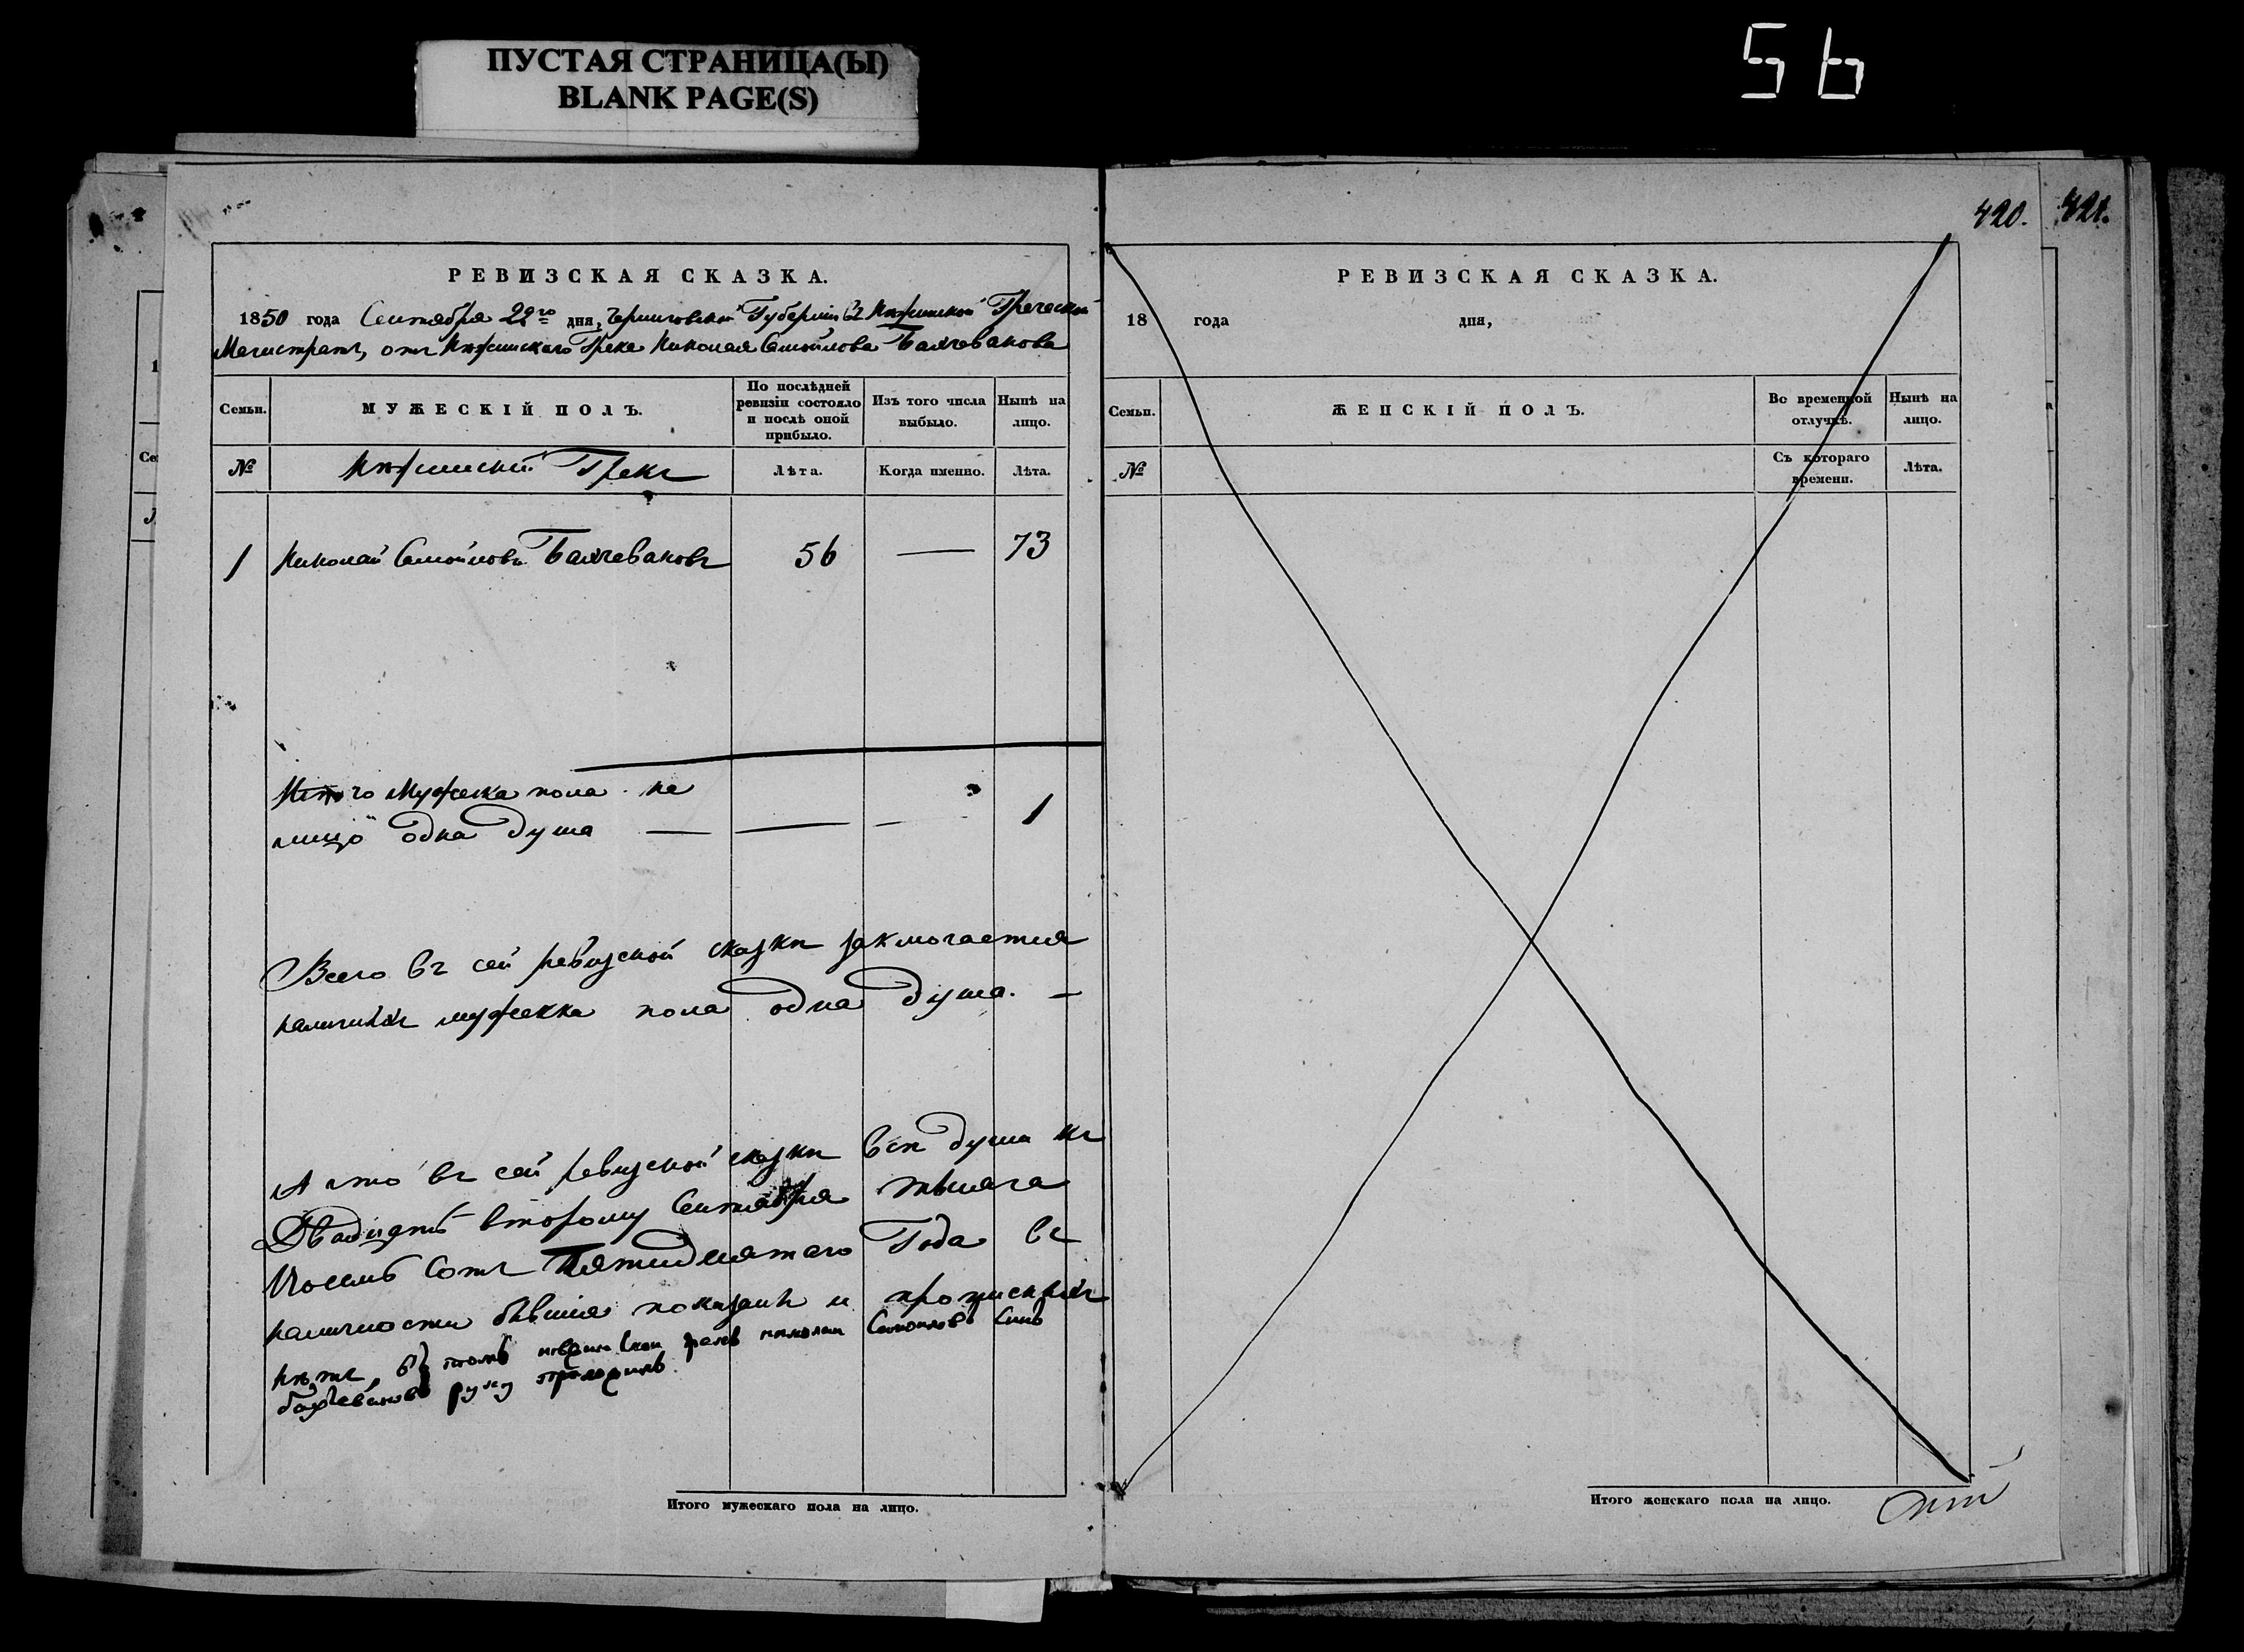 ПУСТАЯ СТРАНИЦА(Ы)
BLANK PAGE(S)
56
РЕВИЗСКАЯ СКАЗКА.
1850 года Сентября 22го дня, Черниговской Губерніи въ Нѣжинской Греческой
Магистратъ, отъ Нѣжинскаго Грека Николая Самойлова Бахчеванова
Семьи.
МУЖЕСКІЙ ПОЛЪ.
По послѣдней ревизіи состояло и послѣ оной прибыло.
Изъ того числа выбыло.
Нынѣ на лицо.
№
Нѣжинскій Грекъ
Лѣта.
Когда именно.
Лѣта.
1 Николай Самойловъ Бахчевановъ 56 — 73
Итого Мужеска пола на
лицо одна душа — — — 1
Всего въ сей ревизской сказкѣ заключается
наличныхъ мужеска пола одна душа. —
А что въ сей ревизской сказкѣ всѣ души къ
Двадцать второму Сентября тысяча
Восемь Сотъ Пятидесятаго Года въ
наличности бывшія показаны и прописныхъ
нѣтъ, въ томъ нѣжинскои грекъ николаи Самоиловъ Синъ
бахчевановъ руку приложилъ.
Итого мужескаго пола на лицо.
420.
421.
РЕВИЗСКАЯ СКАЗКА.
18 года дня,
Семьи.
ЖЕНСКІЙ ПОЛЪ.
Во временной отлучкѣ.
Нынѣ на лицо.
№
Съ котораго времени.
Лѣта.
Итого женскаго пола на лицо.